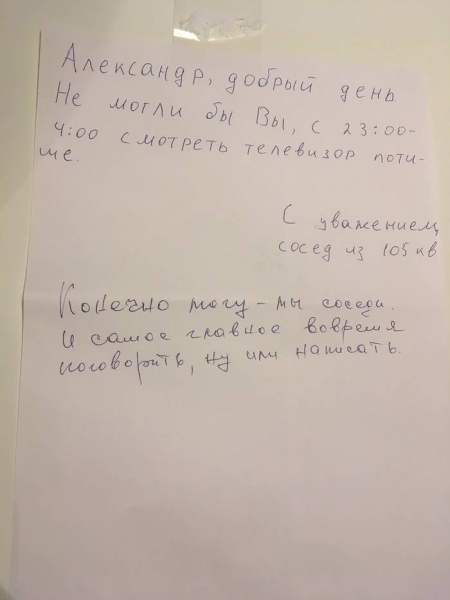 Александр, добрый день
Не могли бы Вы, с 23:00-
4:00 смотреть телевизор поти-
ше.
С уважением,
сосед из 105 кв
Конечно могу - мы соседи.
И самое главное вовремя
поговорить, ну или написать.